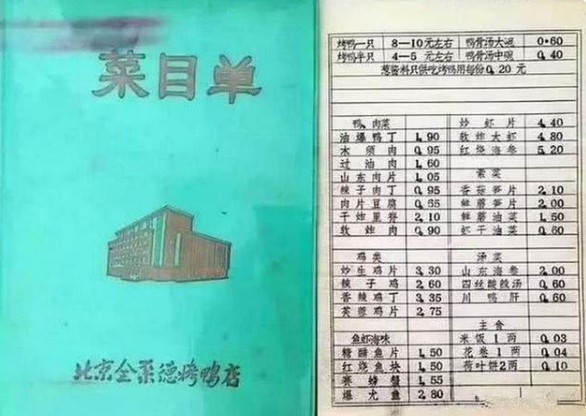 菜目单
北京全聚德烤鸭店
烤鸭一只 8—10元左右 鸭骨汤大碗 0.60
烤鸭半只 4—5元左右 鸭骨汤中碗 0.40
葱酱料只供吃烤鸭用每份0.20元
鸭、肉菜
油爆鸭丁 1.90
木须肉 0.95
过油肉 1.60
山东肉片 1.05
辣子肉丁 0.95
肉片豆腐 0.65
干炸里脊 2.10
软炸肉 0.90
鸡类
炒生鸡片 3.30
辣子鸡 2.60
香辣鸡丁 3.35
芙蓉鸡片 2.75
鱼虾海味
糟溜鱼片 1.50
红烧鱼块 1.50
赛螃蟹 1.55
爆尤鱼 2.80
炒虾片 4.40
软炸大虾 4.80
红烧海参 5.20
素菜
香菇笋片 2.10
鲜蘑笋片 2.00
鲜蘑油菜 1.50
虾子油菜 0.60
汤菜
山东海参 2.00
四丝酸辣汤 0.60
川鸭肝 0.60
主食
米饭1两 0.03
花卷1两 0.04
荷叶饼2两 0.10